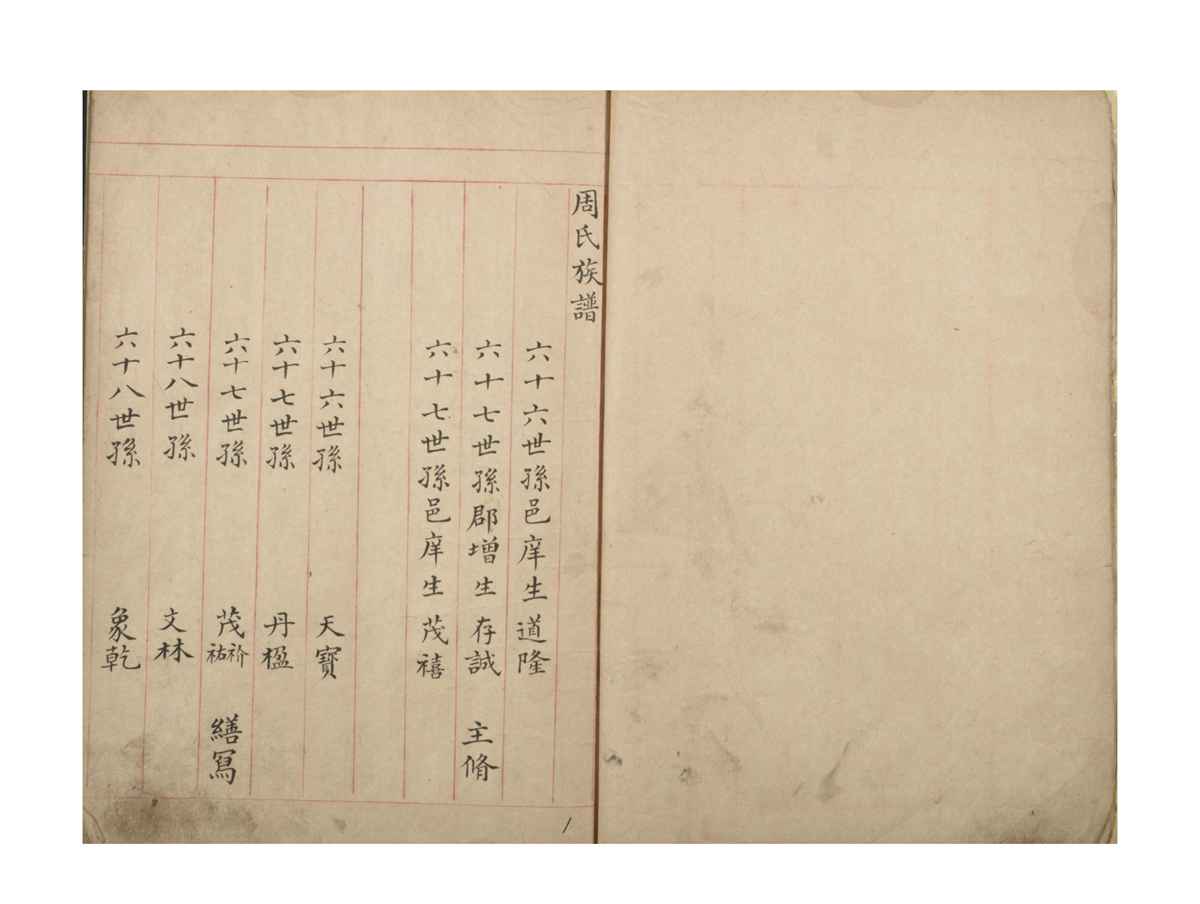 周氏族譜
六十六世孫邑庠生道隆
六十七世孫郡增生存誠 主脩
六十七世孫邑庠生茂禧
六十六世孫 天寶
六十七世孫 丹楹
六十七世孫 茂祄祐 繕寫
六十八世孫 文林
六十八世孫 象乾
1